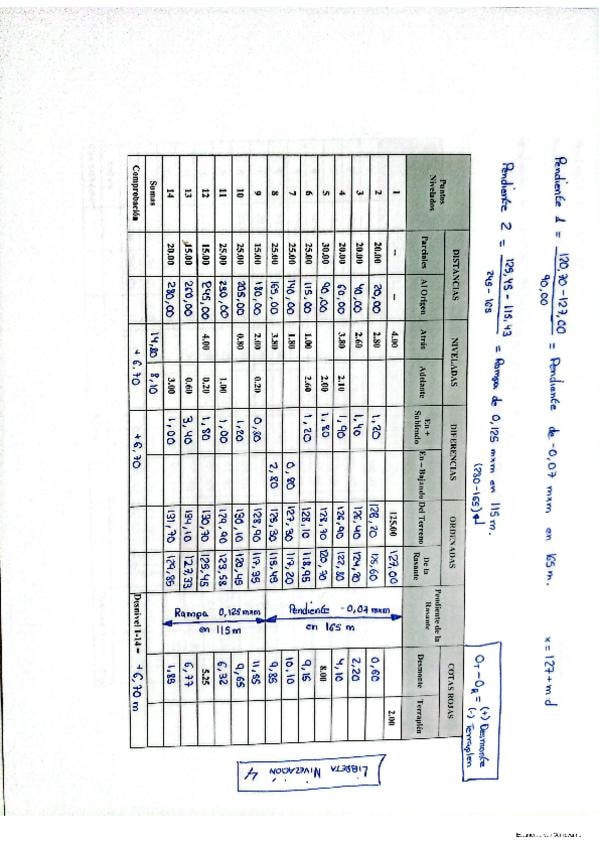 Pendiente 1 = 120,70 - 127,00 / 90,00 = Pendiente de -0,07 mxm en 165 m.
x = 127 + m d
Pendiente 2 = 125,45 - 115,43 / 245 - 165 = Rampa de 0,125 mxm en 115 m.
(280-165)
OT - OR = (+) Desmonte
(-) Terraplen
Puntos Nivelados DISTANCIAS NIVELADAS DIFERENCIAS ORDENADAS Pendiente de la Rasante COTAS ROJAS
Parciales Al Origen Atrás Adelante En + Subiendo En – Bajando Del Terreno De la Rasante Desmonte Terraplén
1 -- -- 4.00 125.00 127,00 2.00
2 20.00 20,00 2.80 1,20 126,20 125,60 0,60
3 20.00 40,00 2.60 1,40 126,40 124,20 2,20
4 20.00 60,00 3.80 2.10 1,90 126,90 122,80 4,10
5 30.00 90,00 2.00 1,80 128,70 120,70 8.00
6 25.00 115,00 1.00 2.60 1,20 128,10 118,95 9,15
7 25.00 140,00 1.80 0,80 127,30 117,20 10,10
8 25.00 165,00 3.80 2,80 125,30 115,45 9,85
Pendiente -0,07 mxm
en 165 m
9 15.00 180,00 2.00 0.20 128,90 117,35 11,55
10 25.00 205,00 0.80 1,20 130,10 120,45 9,65
11 25.00 230,00 1.00 1,00 129,90 123,58 6,32
12 15.00 245,00 4.00 0.20 1,80 130,70 125,45 5.25
13 15.00 260,00 0.60 3,40 134,10 127,33 6,77
14 20.00 280,00 3.00 1,00 131,70 129,85 1,85
Rampa 0,125 mxm
en 115 m
Sumas 14,80 8,10
Comprobación +6.70 +6,70 Desnivel 1-14 = +6,70 m
LIBRETA NIVELACIÓN 4